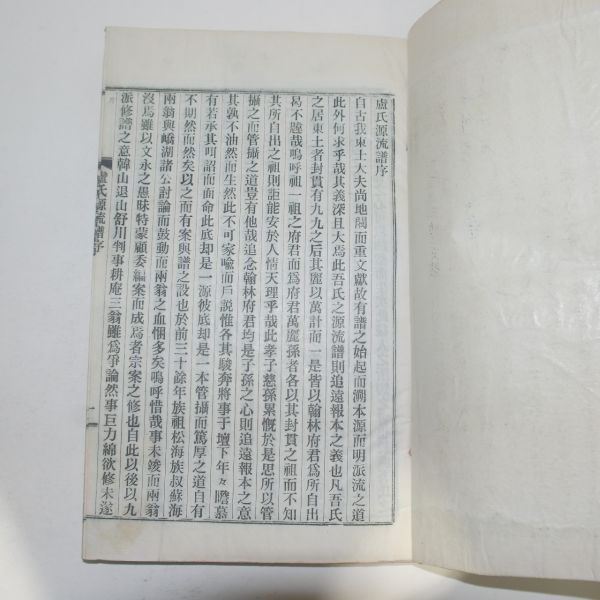 盧氏源流譜序
自古我東土大夫尚地閥而重文獻故有譜之始起而溯本源而明派流之道
此外何求乎哉其義深且大焉此吾氏之源流譜則追遠報本之義也凡吾氏
之居東土者封貫有九九之后其麗以萬計而一是皆以翰林府君爲所自出
曷不韙哉嗚呼祖一祖之府君而爲府君萬麗孫者各以其封貫之祖而不知
其所自出之祖則詎能安於人情天理乎哉此孝子慈孫累慨於是思所以管
攝之而管攝之道豈有他哉追念翰林府君均是子孫之心則追遠報本之意
其孰不油然而生然此不可家喩而戶說惟各其駿奔將事于壇下年々瞻慕
有若承其叮詔而面命此底却是一源彼底却是一本管攝而篤厚之道自有
不期然而然矣以之而有案與譜之設也於前三十餘年族祖松海族叔蘇海
兩翁與嶠湖諸公討論而鼓動而兩翁之血悃多矣嗚呼惜哉事未竣而兩翁
沒焉雖以文永之愚昧特蒙顧委編案而成焉者宗案之修也自此以後以九
派修譜之意韓山退山舒川判事耕庵三翁雖爲爭論然事巨力綿欲修未遂
盧氏源流譜序
一